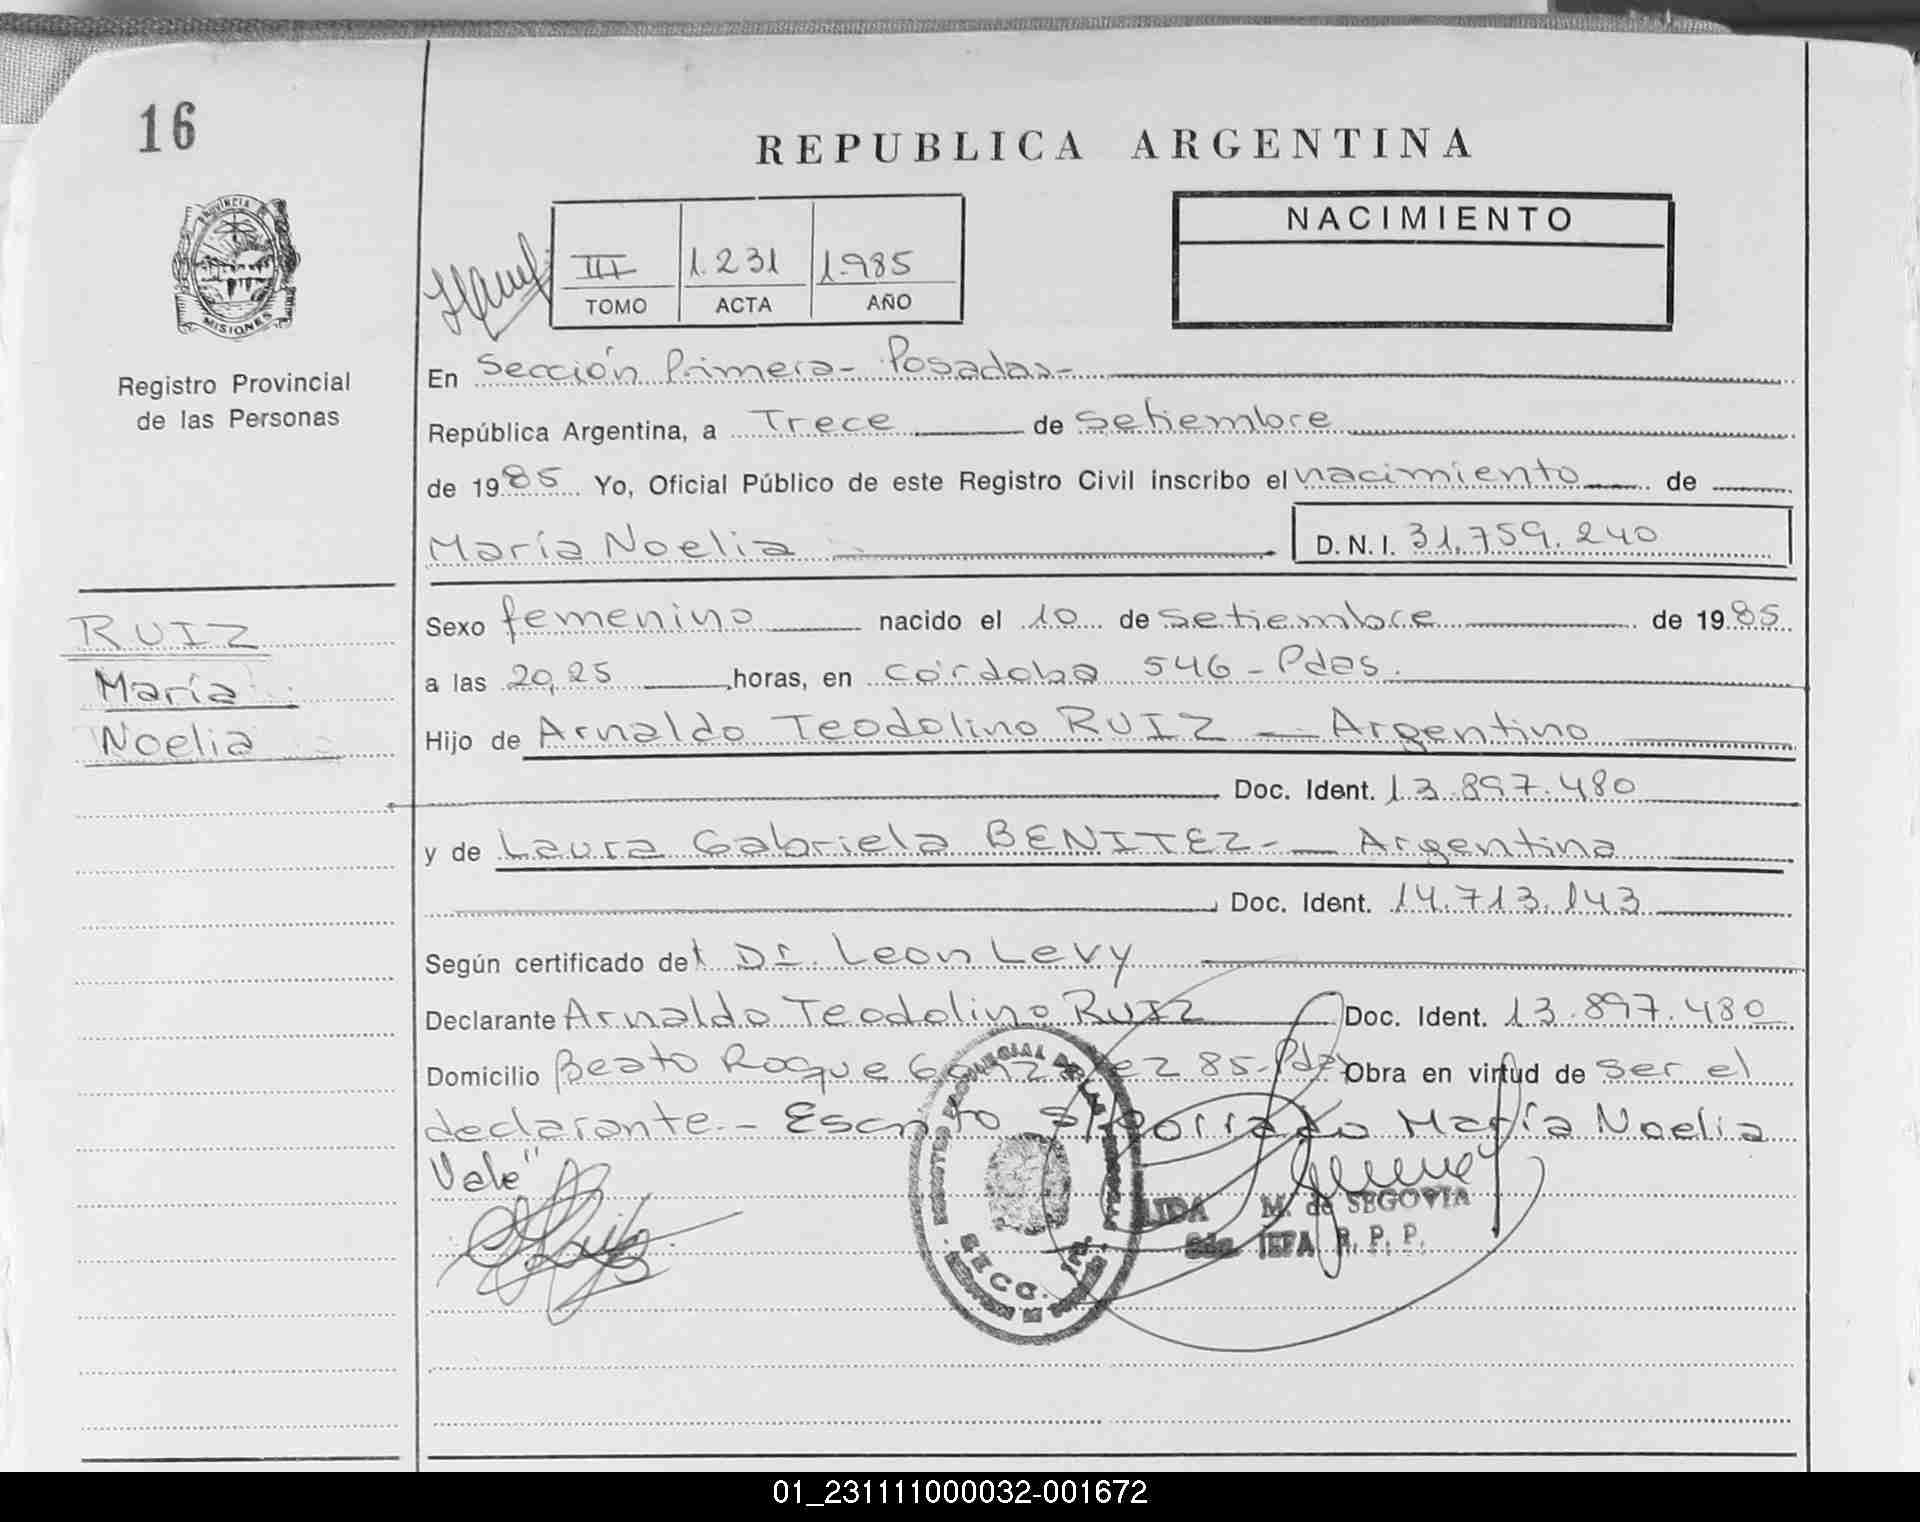 16
REPUBLICA ARGENTINA
PROVINCIA DE
MISIONES
Registro Provincial
de las Personas
III 1.231 1.985
TOMO ACTA AÑO
NACIMIENTO
En Sección Primera - Posadas -
República Argentina, a Trece de Setiembre
de 1985 Yo, Oficial Público de este Registro Civil inscribo el nacimiento de
María Noelia D.N.I. 31.759.240
RUIZ
María
Noelia
Sexo femenino nacido el 10 de setiembre de 1985
a las 20,25 horas, en córdoba 546 - Pdas.
Hijo de Arnaldo Teodolino RUIZ — Argentino
Doc. Ident. 13.897.480
y de Laura Gabriela BENITEZ - — Argentina
Doc. Ident. 14.713.143
Según certificado del Dr. Leon Levy
Declarante Arnaldo Teodolino RUIZ Doc. Ident. 13.897.480
Domicilio Beato Roque Gonzalez 85 - Pdas Obra en virtud de ser el
declarante. - Escrito s/borrado María Noelia
Vale"
M. de SEGOVIA
JEFA R. P. P.
SECC. 1ra.
01_231111000032-001672